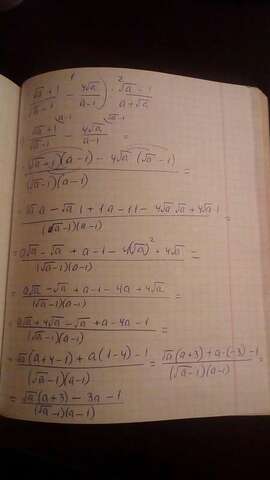 1
(√a+1)/(√a-1) - 4√a/(a-1)) · 2 (√a-1)/(a+√a)
(√a+1)/(√a-1) ^(a-1) - 4√a/(a-1) ^(√a-1) =
((√a+1)(a-1) - 4√a(√a-1))/((√a-1)(a-1)) =
(√a·a - √a·1 + 1·a - 1·1 - 4√a·√a + 4√a·1)/((√a-1)(a-1)) =
= (a√a - √a + a - 1 - 4(√a)² + 4√a)/((√a-1)(a-1)) =
= (a√a - √a + a - 1 - 4a + 4√a)/((√a-1)(a-1)) =
= (a√a + 4√a - √a + a - 4a - 1)/((√a-1)(a-1)) =
= (√a(a+4-1) + a(1-4) - 1)/((√a-1)(a-1)) = (√a(a+3) + a·(-3) - 1)/((√a-1)(a-1)) =
= (√a(a+3) - 3a - 1)/((√a-1)(a-1))